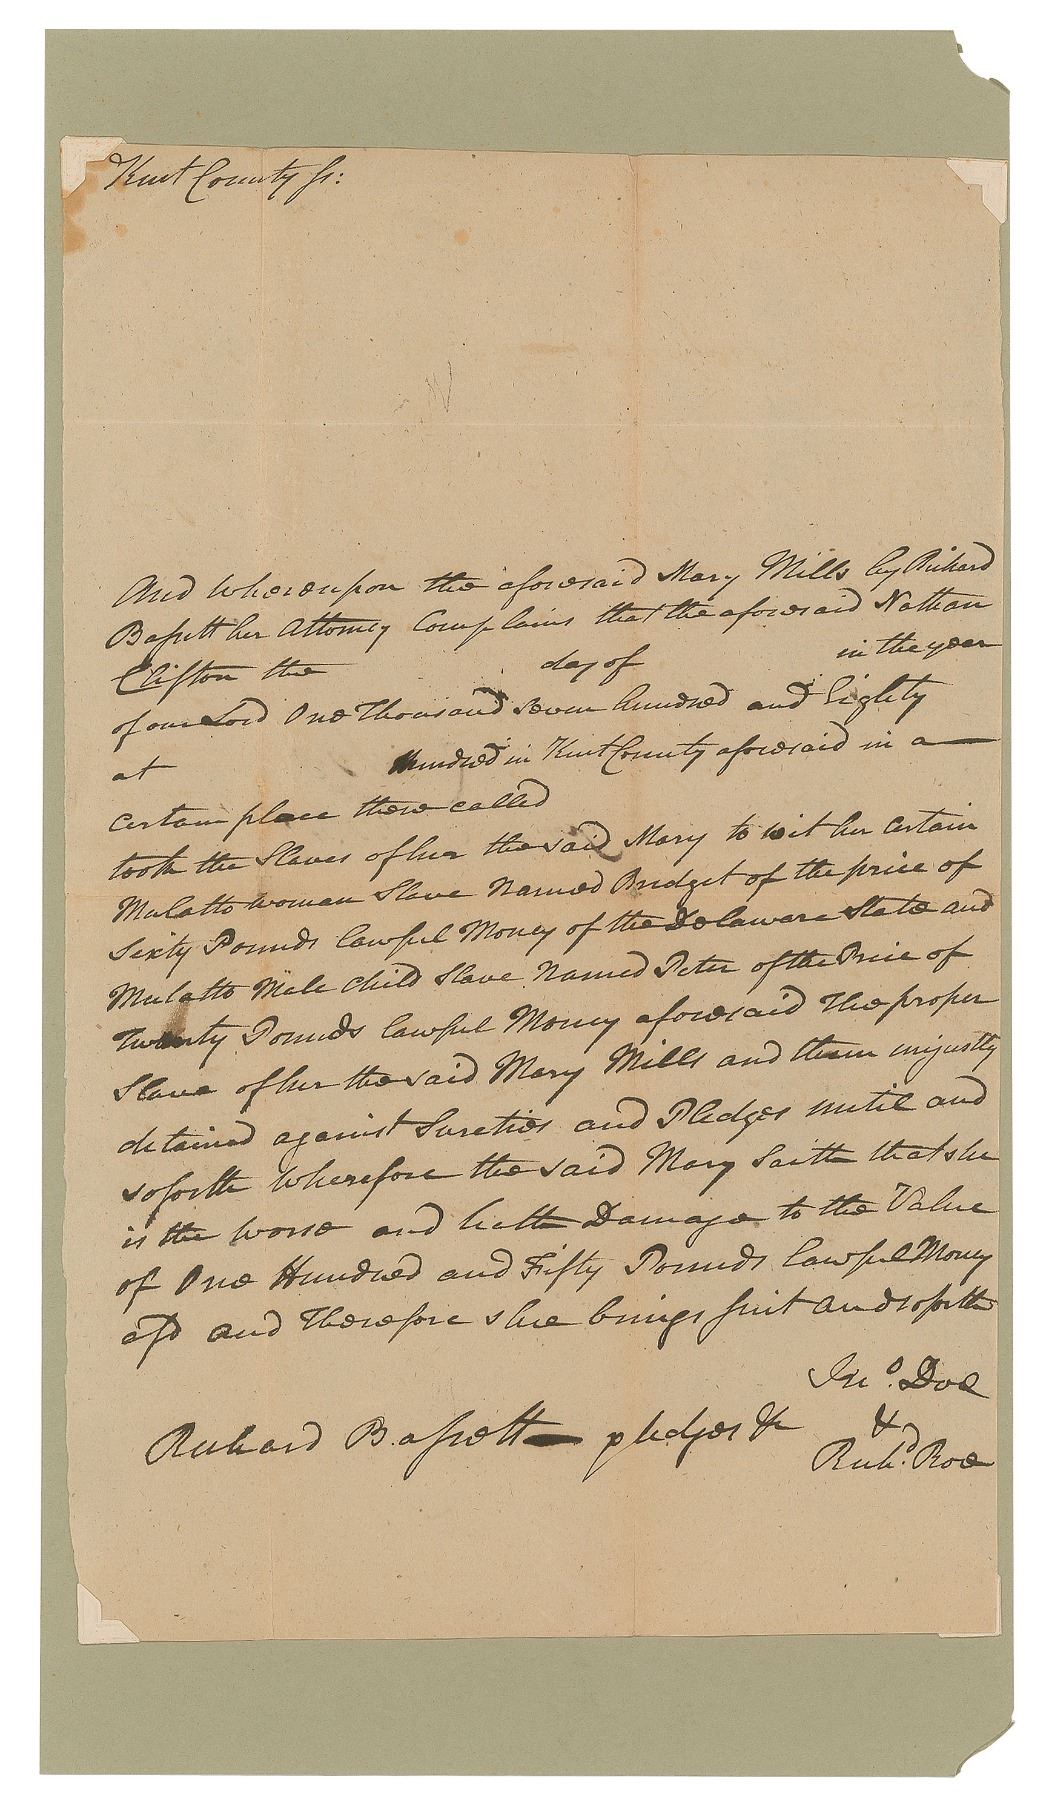 Kent County ss:
And Whereupon the aforesaid Mary Mills by Richard
Bassett her Attorney Complains that the aforesaid Nathan
Clifton the day of in the year
of our Lord One Thousand seven hundred and Eighty
at Hundred in Kent County aforesaid in a
certain place there called
took the Slaves of her the said Mary to wit her certain
Mulatto woman Slave Named Bridget of the price of
Sixty Pounds lawful Money of the Delaware State and
Mulatto Male Child Slave Named Peter of the Price of
Twenty Pounds lawful Money aforesaid The proper
Slave of her the said Mary Mills and them unjustly
detained against Sureties and Pledges until and
soforth Wherefore the said Mary Saith that she
is the Worse and hath Damage to the Value
of One Hundred and Fifty Pounds lawful Money
afd and Therefore she brings suit and soforth
Jno. Doe
Richard Bassett pledges &c &
Richd. Roe